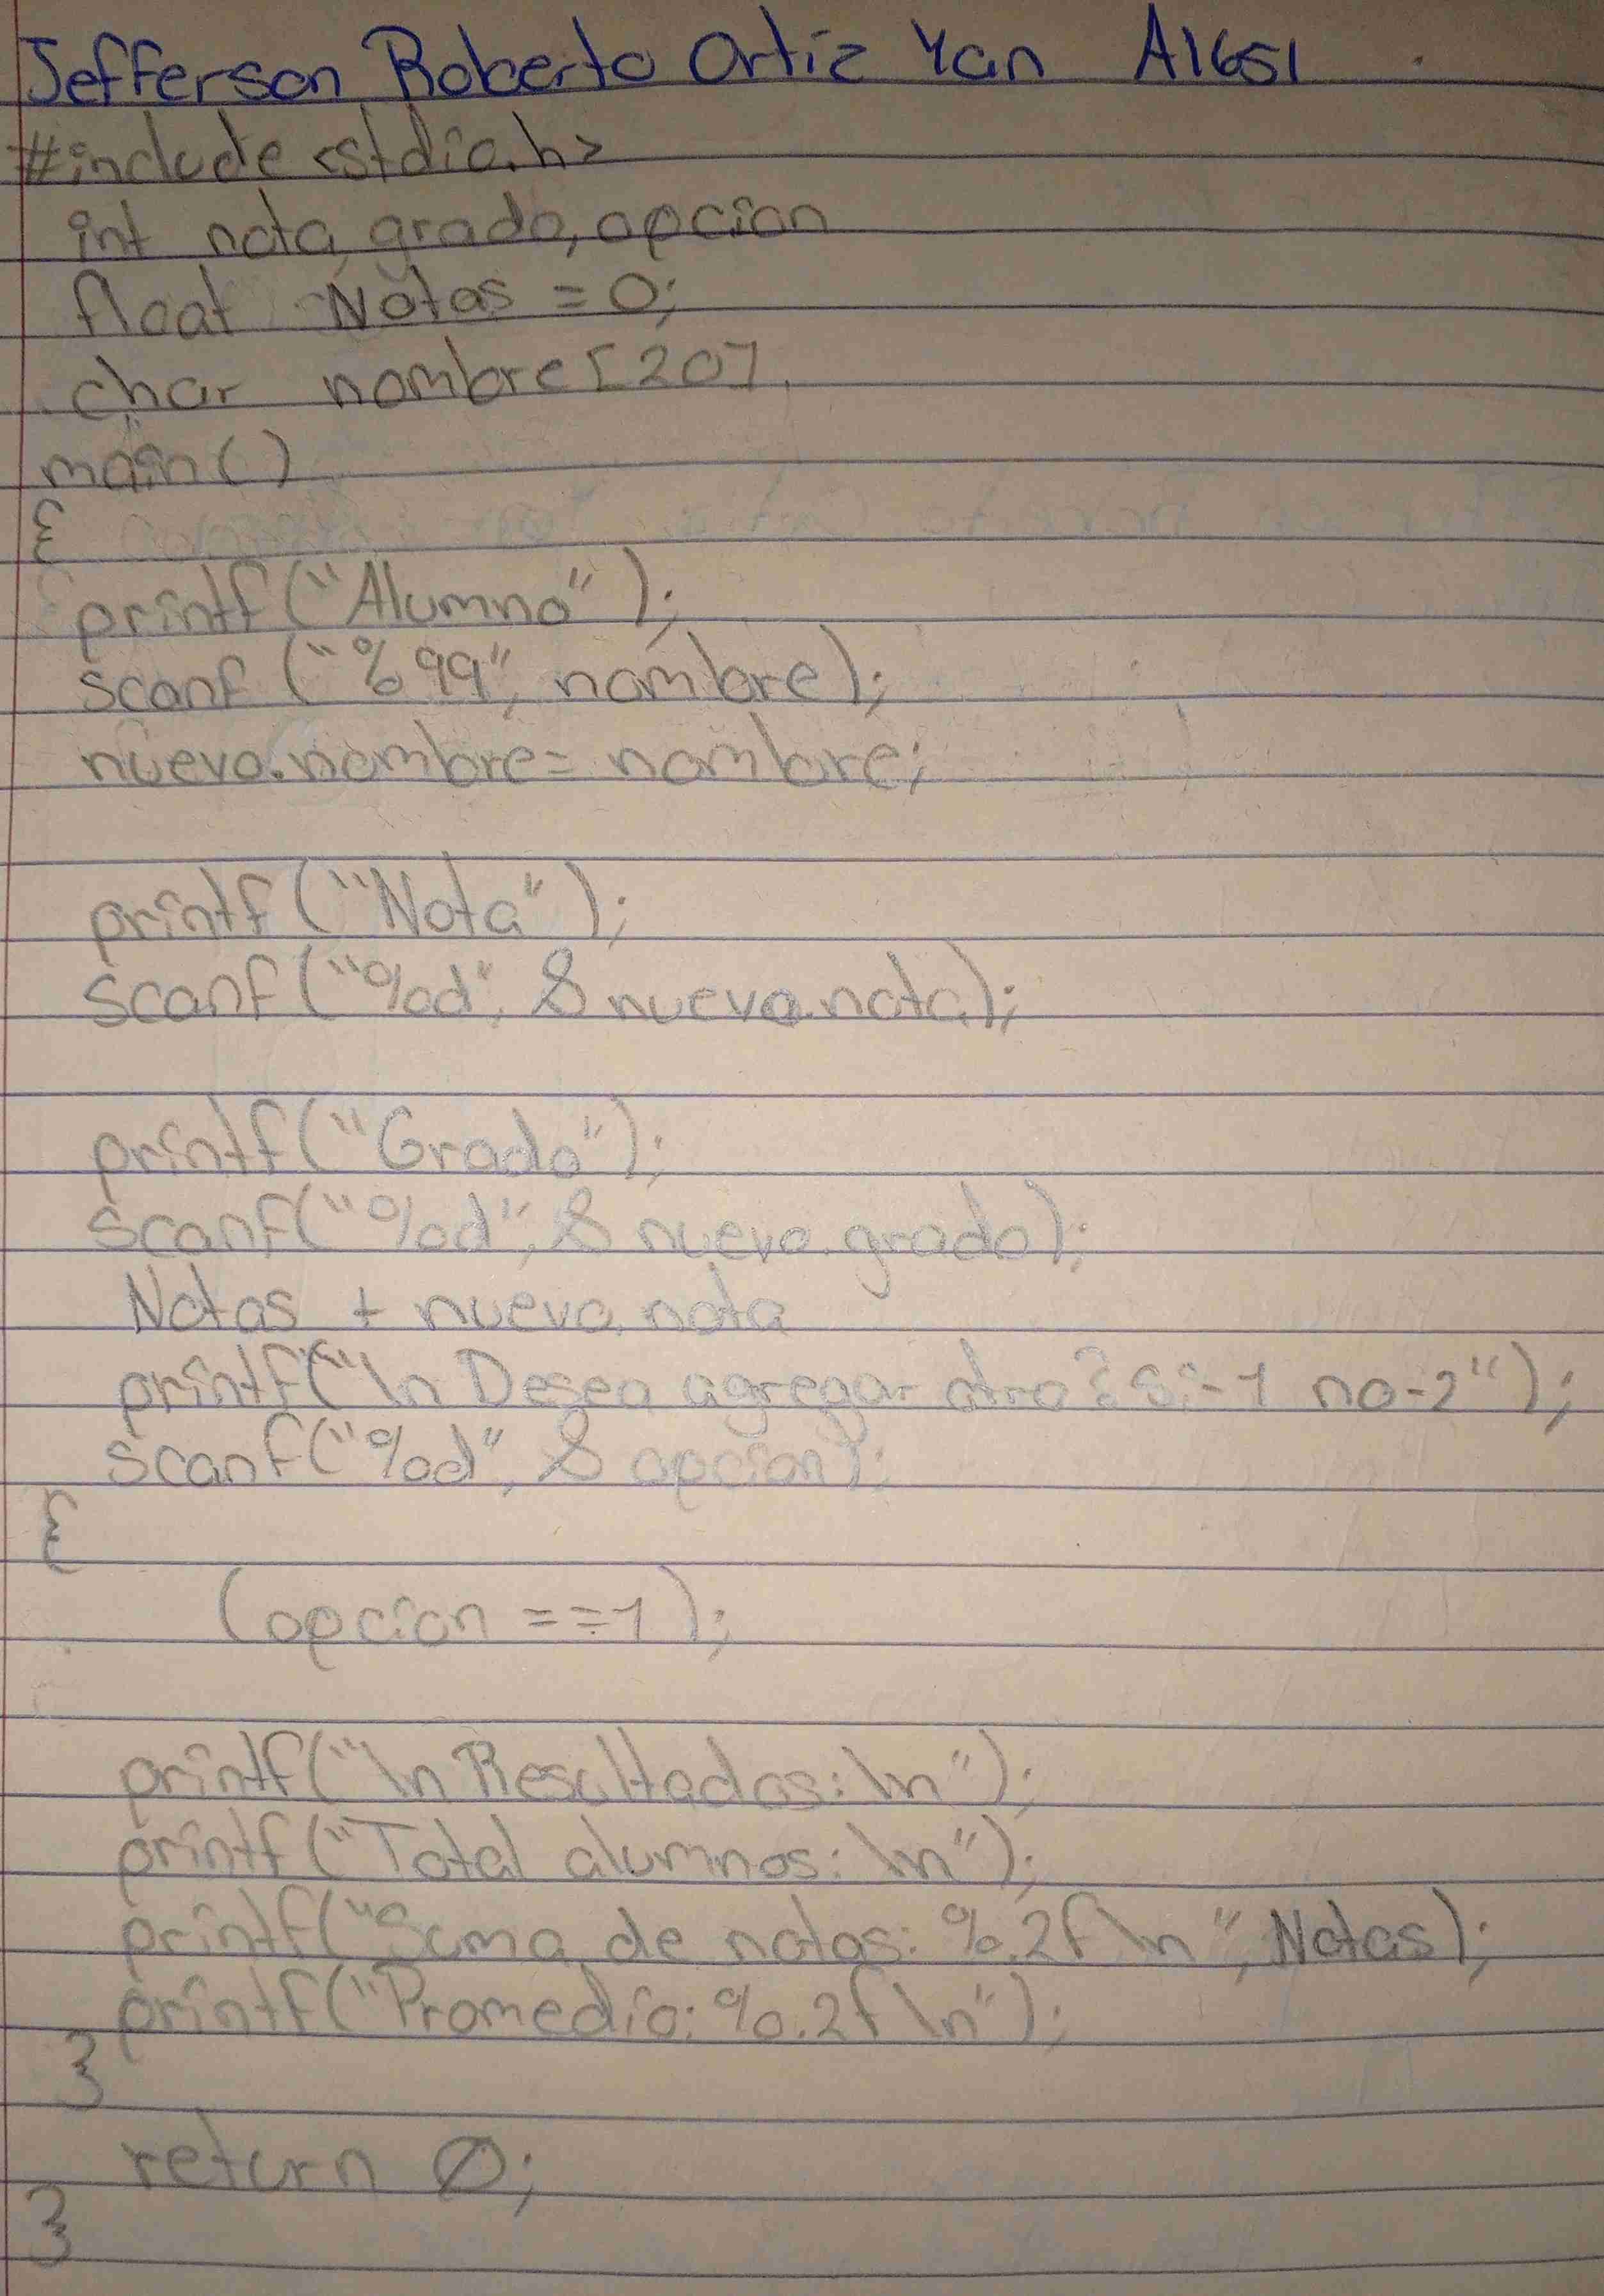 Jefferson Roberto Ortiz Yan A1651
#include <stdio.h>
int nota, grado, opcion
float Notas = 0;
char nombre [20],
main()
{
printf("Alumno");
scanf ("%99", nombre);
nuevo.nombre= nombre;
printf("Nota");
scanf("%d", &nuevo.nota);
printf("Grado");
scanf("%d", & nuevo.grado);
Notas + nuevo.nota
printf("\n Desea agregar otro? si-1 no-2");
scanf("%d", & opcion);
{
(opcion ==1);
printf("\n Resultados: \n");
printf("Total alumnos: \n");
printf("Suma de notas: %.2f \n", Notas);
printf("Promedio: %.2f \n");
}
return 0;
}